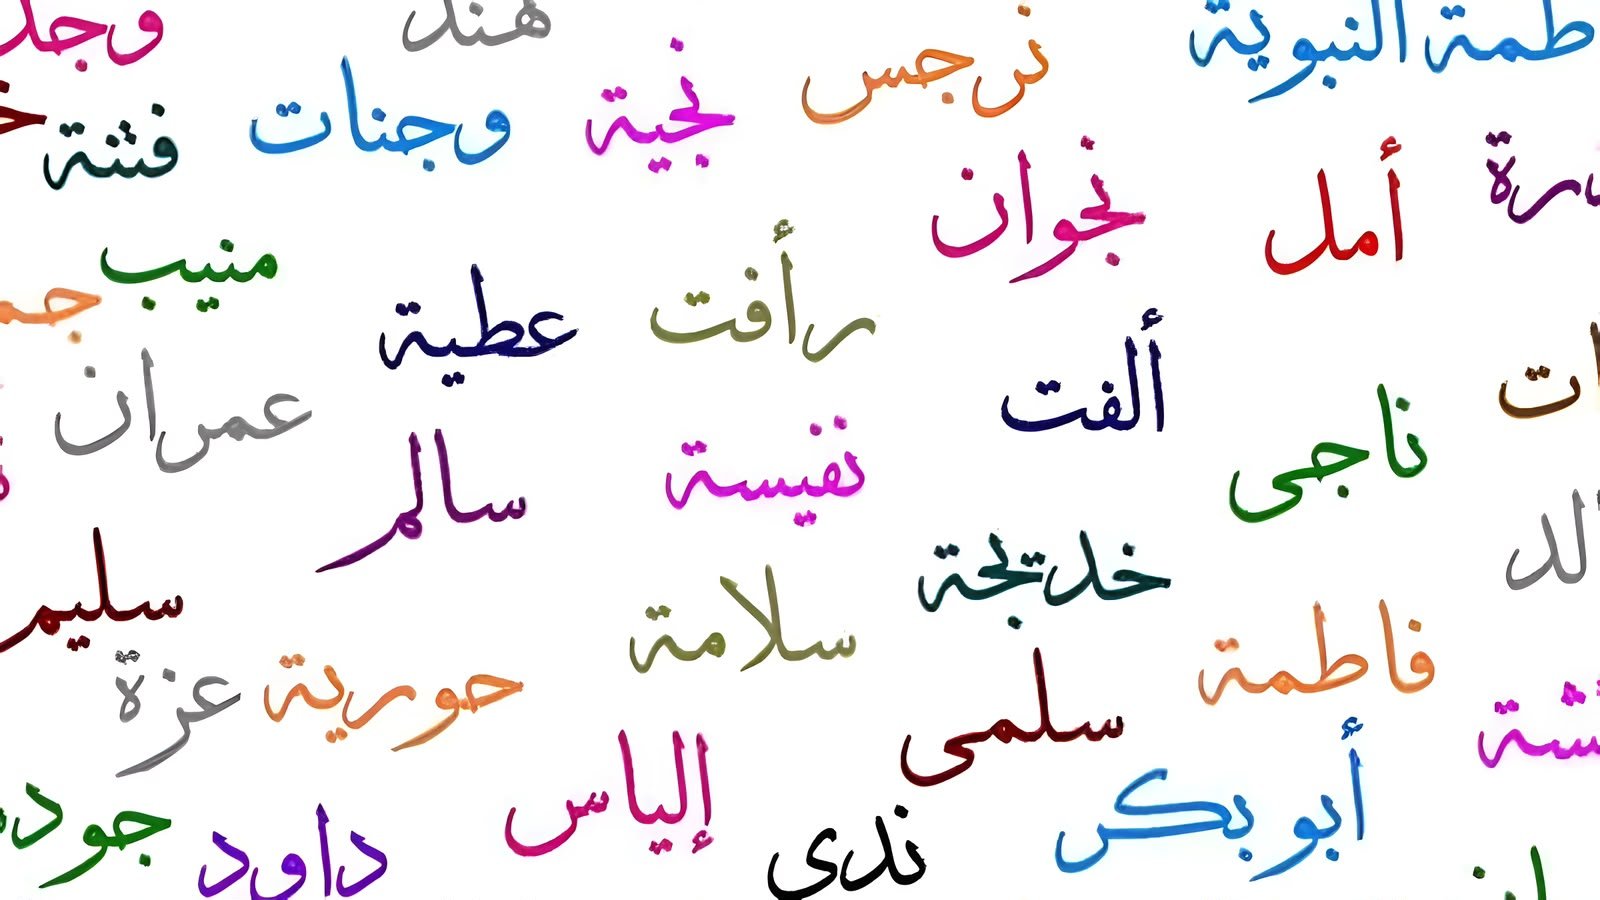 هند
فاطمة النبوية
نرجس
نجية
وجنات
أمل
نجوان
منيب
رأفت
عطية
ألفت
عمران
ناجى
نفيسة
سالم
خديجة
سليم
سلامة
فاطمة
حورية
عزة
سلمى
إلياس
أبو بكر
جودة
داود
ندى